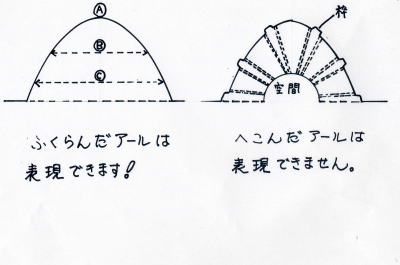 Ⓐ
Ⓑ
Ⓒ
ふくらんだアールは
表現できます!
枠
空間
へこんだアールは
表現できません。